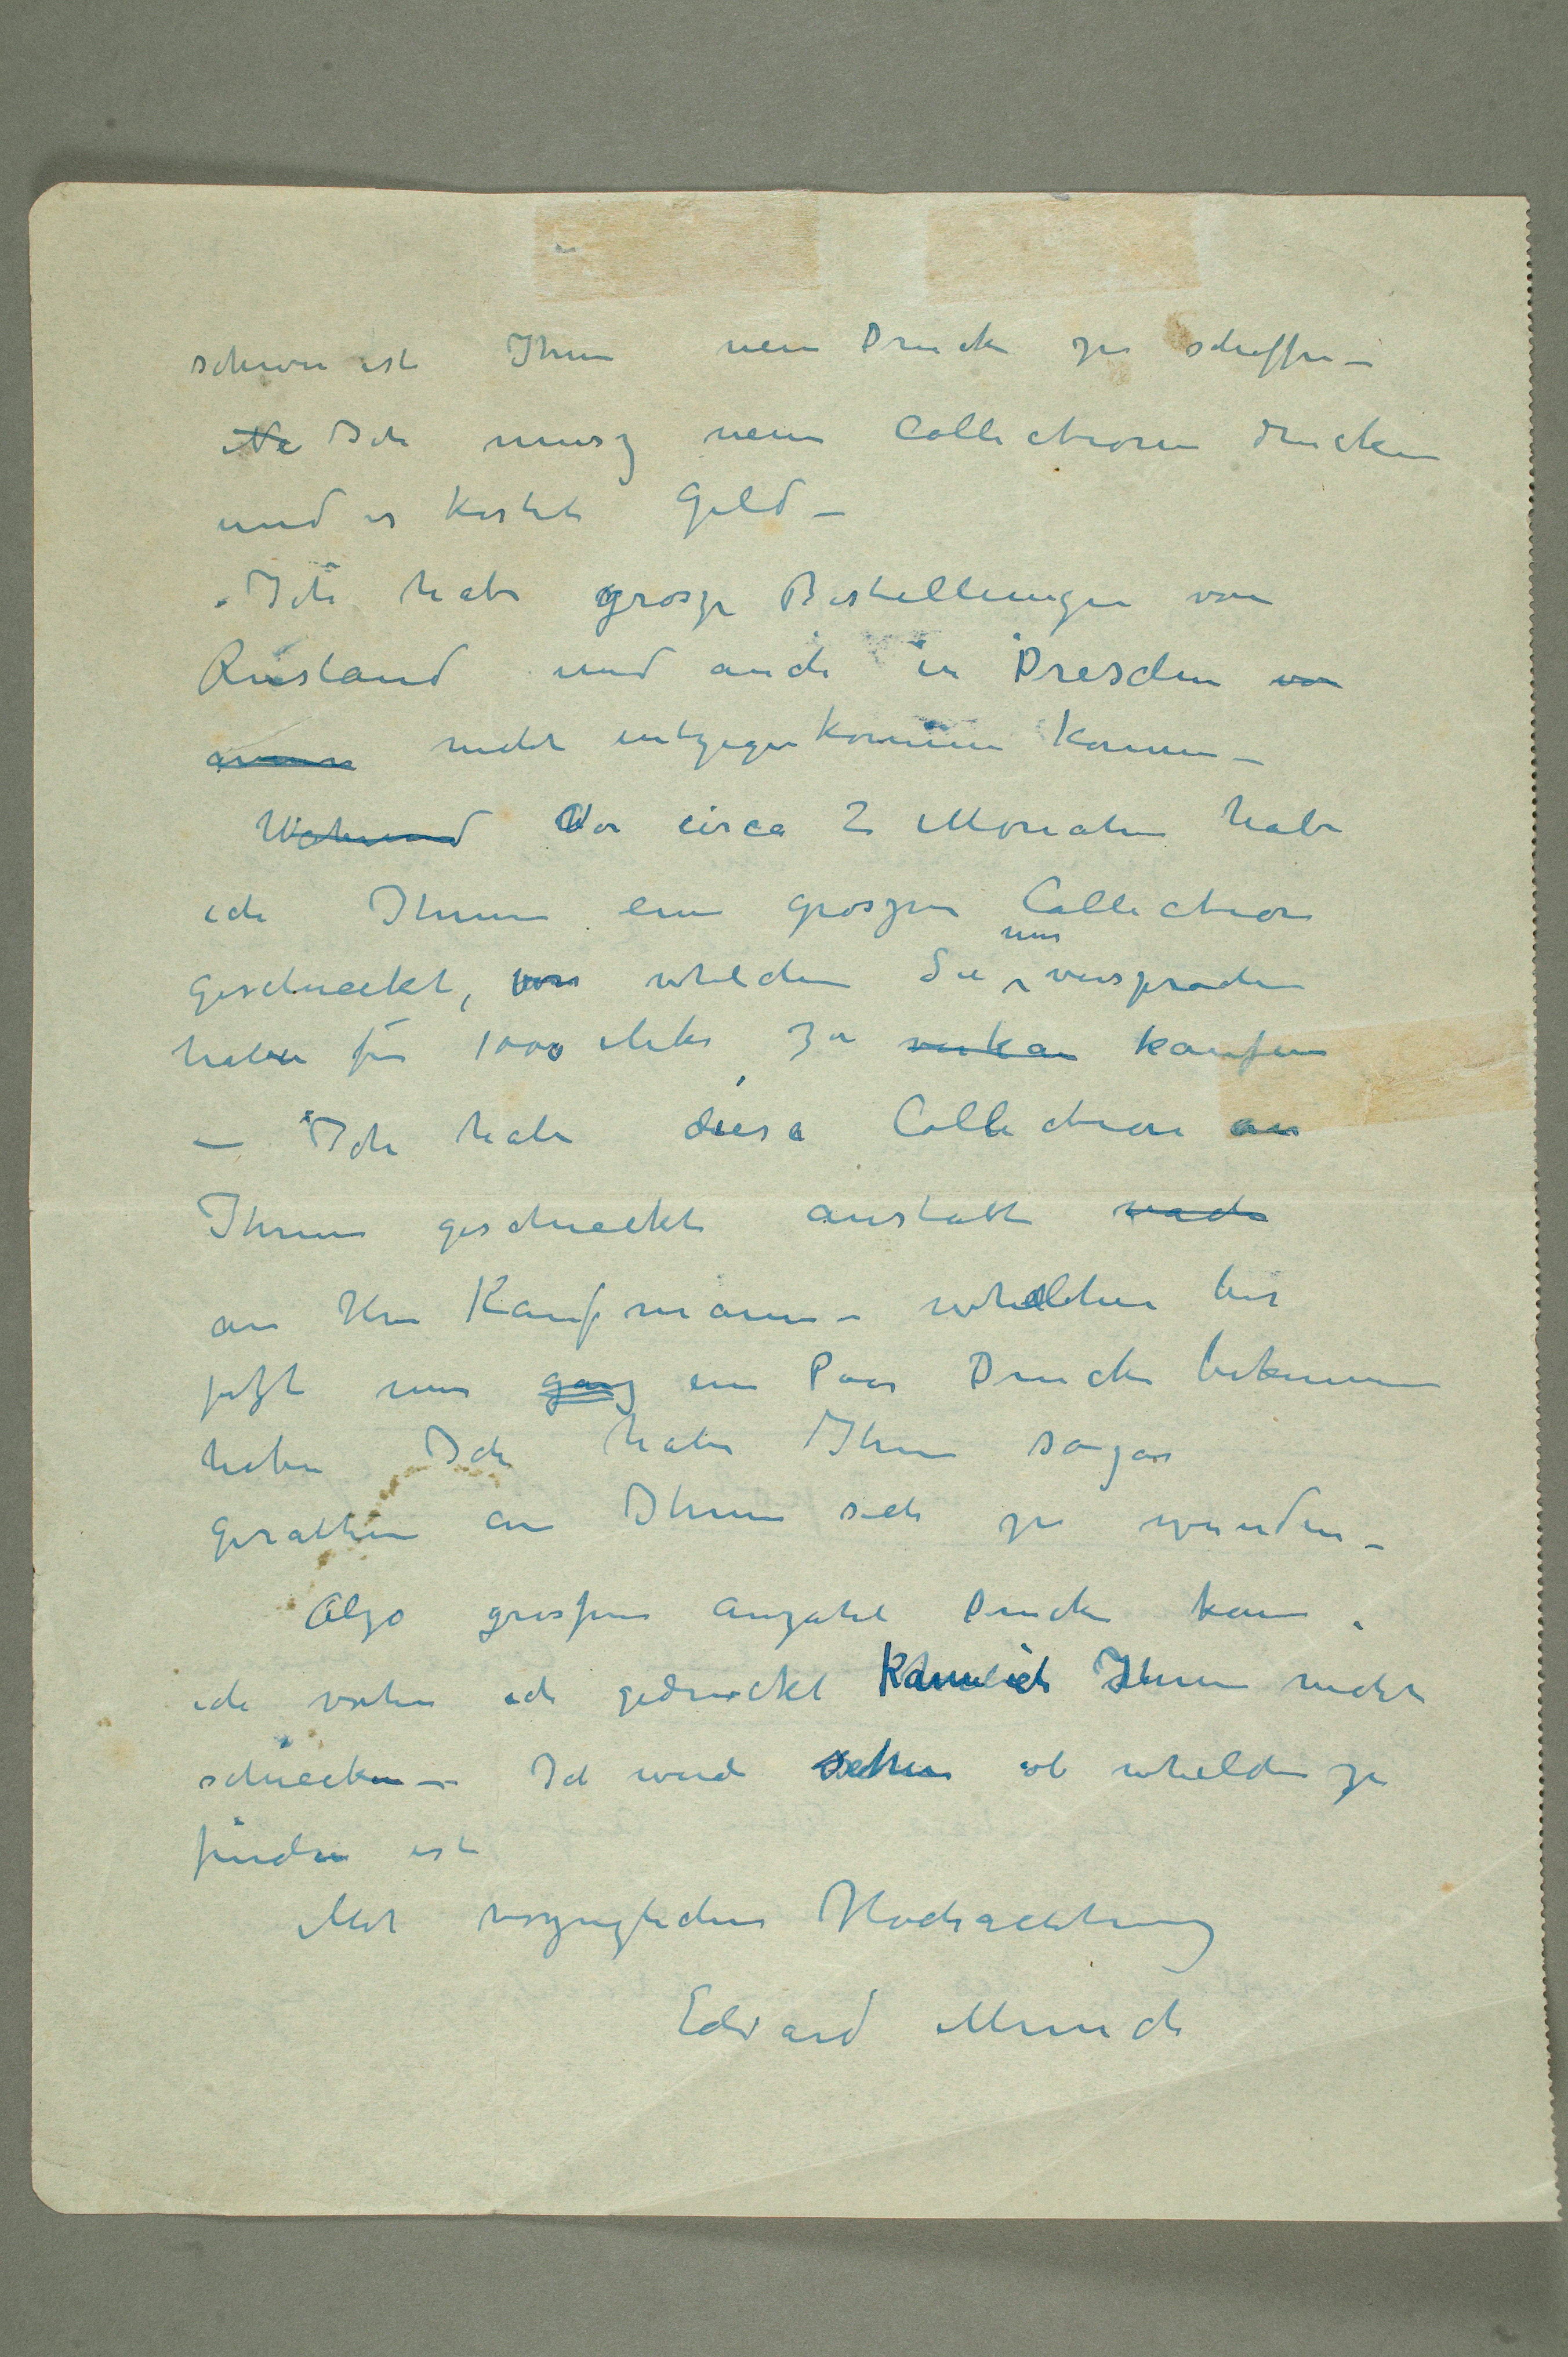 schwer ist Ihnen neue Drucke zu schaffen –
Ne Ich musz neue Collectionen drucken
und es kostet Geld –
Ich habe grosze Bestellungen von
Rusland und auch in Dresden von
nicht entgegenkommen konnen –
Während Vor circa 2 Monaten habe
ich Ihnen eine groszen Collection
geschieckt, von whelchen Sie mir versprochen
haben für 1000 Mk zu verkau kaufen
– Ich habe diese Collection an
Ihnen geschieckt anstatt nach
an Hrn Kaufmann – whelcher bis
jetzt nur ganz ein Paar Drucke bekommen
haben Ich habe Ihm sogar
gerathen an Ihnen sich zu wenden –
Alzo groszen Anzahl Drucke kann
ich vorher ich gedruckt kann ich Ihnen nicht
schiecken – Ich werde sehen ob whelche zu
finden ist
Mit vorzuglichen Hochachtung
Edvard Munch